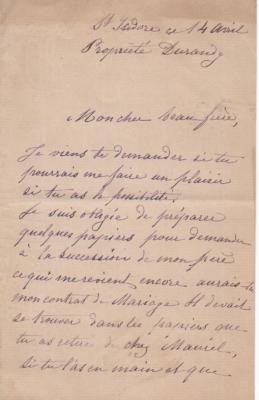 St Isidore ce 14 Avril
Propriété Durand
Mon cher beau frère,
Je viens te demander si tu
pourrais me faire un plaisir
si tu as la possibilité.
Je suis obligé de préparer
quelques papiers pour demander
à la succession de mon père
ce qui me revient encore aurais tu
mon contrat de Mariage Il devait
se trouver dans les papiers que
tu as retiré de chez Mauriel,
si tu l'as en main et que